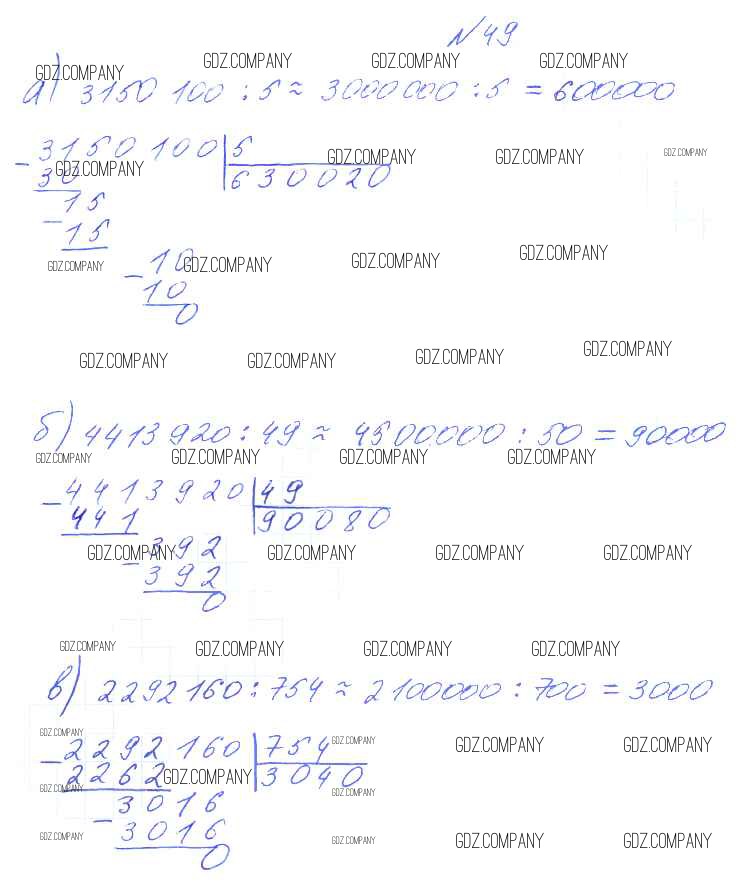 N49
GDZ.COMPANY GDZ.COMPANY GDZ.COMPANY GDZ.COMPANY
а) 3150 100 : 5 ≈ 3000000 : 5 = 600000
- 3150100 | 5
GDZ.COMPANY GDZ.COMPANY GDZ.COMPANY GDZ.COMPANY
30 630020
- 15
15
GDZ.COMPANY - 10 GDZ.COMPANY GDZ.COMPANY GDZ.COMPANY
10
0
GDZ.COMPANY GDZ.COMPANY GDZ.COMPANY GDZ.COMPANY
б) 4413920 : 49 ≈ 4500000 : 50 = 90000
GDZ.COMPANY GDZ.COMPANY GDZ.COMPANY GDZ.COMPANY
- 4413920 | 49
441 90080
GDZ.COMPANY - 392 GDZ.COMPANY GDZ.COMPANY GDZ.COMPANY
392
0
GDZ.COMPANY GDZ.COMPANY GDZ.COMPANY GDZ.COMPANY
в) 2292160 : 754 ≈ 2100000 : 700 = 3000
GDZ.COMPANY
- 2292160 | 754 GDZ.COMPANY GDZ.COMPANY GDZ.COMPANY
2262 GDZ.COMPANY 3040
GDZ.COMPANY GDZ.COMPANY
- 3016
3016
GDZ.COMPANY GDZ.COMPANY GDZ.COMPANY GDZ.COMPANY
0